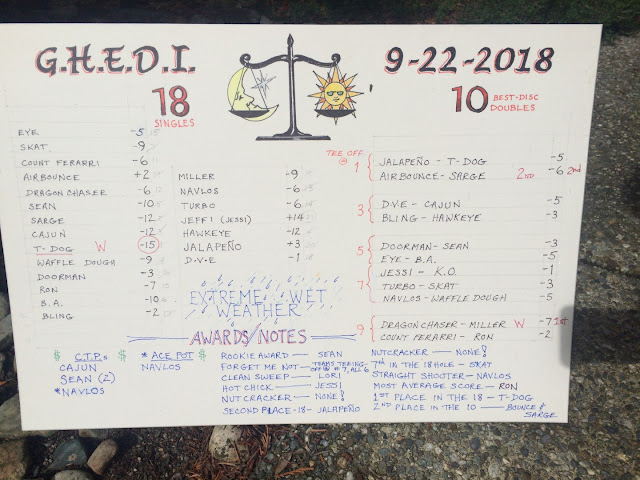 G.H.E.D.I.
9-22-2018
18
SINGLES
10 BEST-DISC
DOUBLES
EYE -5
SKAT -9
COUNT FERARRI -6
AIRBOUNCE +2
DRAGON CHASER -6
SEAN -10
SARGE -12
CAJUN -12
T-DOG W -15
WAFFLE DOUGH -9
DOORMAN -3
RON -7
B.A. -10
BLING -2
MILLER -9
NAVLOS -6
TURBO -6
JEFFI (JESSI) +14
HAWKEYE -12
JALAPEÑO +3
D.V.E -1
TEE OFF
@ 1
JALAPEÑO - T-DOG -5
AIRBOUNCE - SARGE 2ND -6 2nd
3
D.V.E - CAJUN -5
BLING - HAWKEYE -3
5
DOORMAN - SEAN -3
EYE - B.A. -5
7
JESSI - K.O. -1
TURBO - SKAT -3
NAVLOS - WAFFLE DOUGH -5
9
DRAGON CHASER - MILLER W -7 1st
COUNT FERARRI - RON -2
EXTREME WET
WEATHER
AWARDS/NOTES
$ C.T.P.s $
CAJUN
SEAN (2)
*NAVLOS
* ACE POT $
NAVLOS
ROOKIE AWARD — SEAN
FORGET ME NOT — TEAMS TEEING OFF IN # 7, ALL 6
CLEAN SWEEP — LORI
HOT CHICK — JESSI
NUTCRACKER — NONE!
SECOND PLACE - 18 - JALAPEÑO
NUTCRACKER — NONE!
7th IN THE 18 HOLE - SKAT
STRAIGHT SHOOTER — NAVLOS
MOST AVERAGE SCORE — RON
1ST PLACE IN THE 18 - T-DOG
2ND PLACE IN THE 10 — BOUNCE &
SARGE